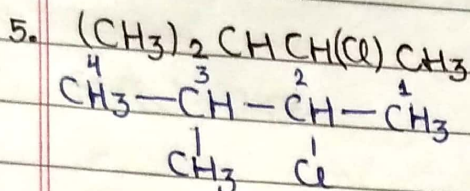 5. (CH3)2CHCH(Cl)CH3
4 3 2 1
CH3-CH-CH-CH3
CH3 Cl